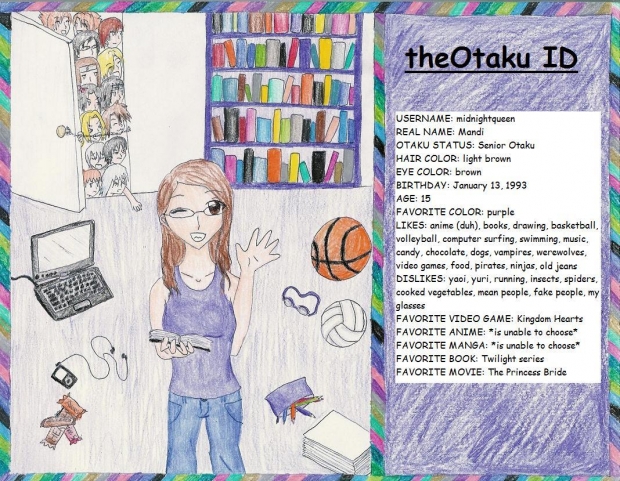 theOtaku ID
USERNAME: midnightqueen
REAL NAME: Mandi
OTAKU STATUS: Senior Otaku
HAIR COLOR: light brown
EYE COLOR: brown
BIRTHDAY: January 13, 1993
AGE: 15
FAVORITE COLOR: purple
LIKES: anime (duh), books, drawing, basketball,
volleyball, computer surfing, swimming, music,
candy, chocolate, dogs, vampires, werewolves,
video games, food, pirates, ninjas, old jeans
DISLIKES: yaoi, yuri, running, insects, spiders,
cooked vegetables, mean people, fake people, my
glasses
FAVORITE VIDEO GAME: Kingdom Hearts
FAVORITE ANIME: *is unable to choose*
FAVORITE MANGA: *is unable to choose*
FAVORITE BOOK: Twilight series
FAVORITE MOVIE: The Princess Bride